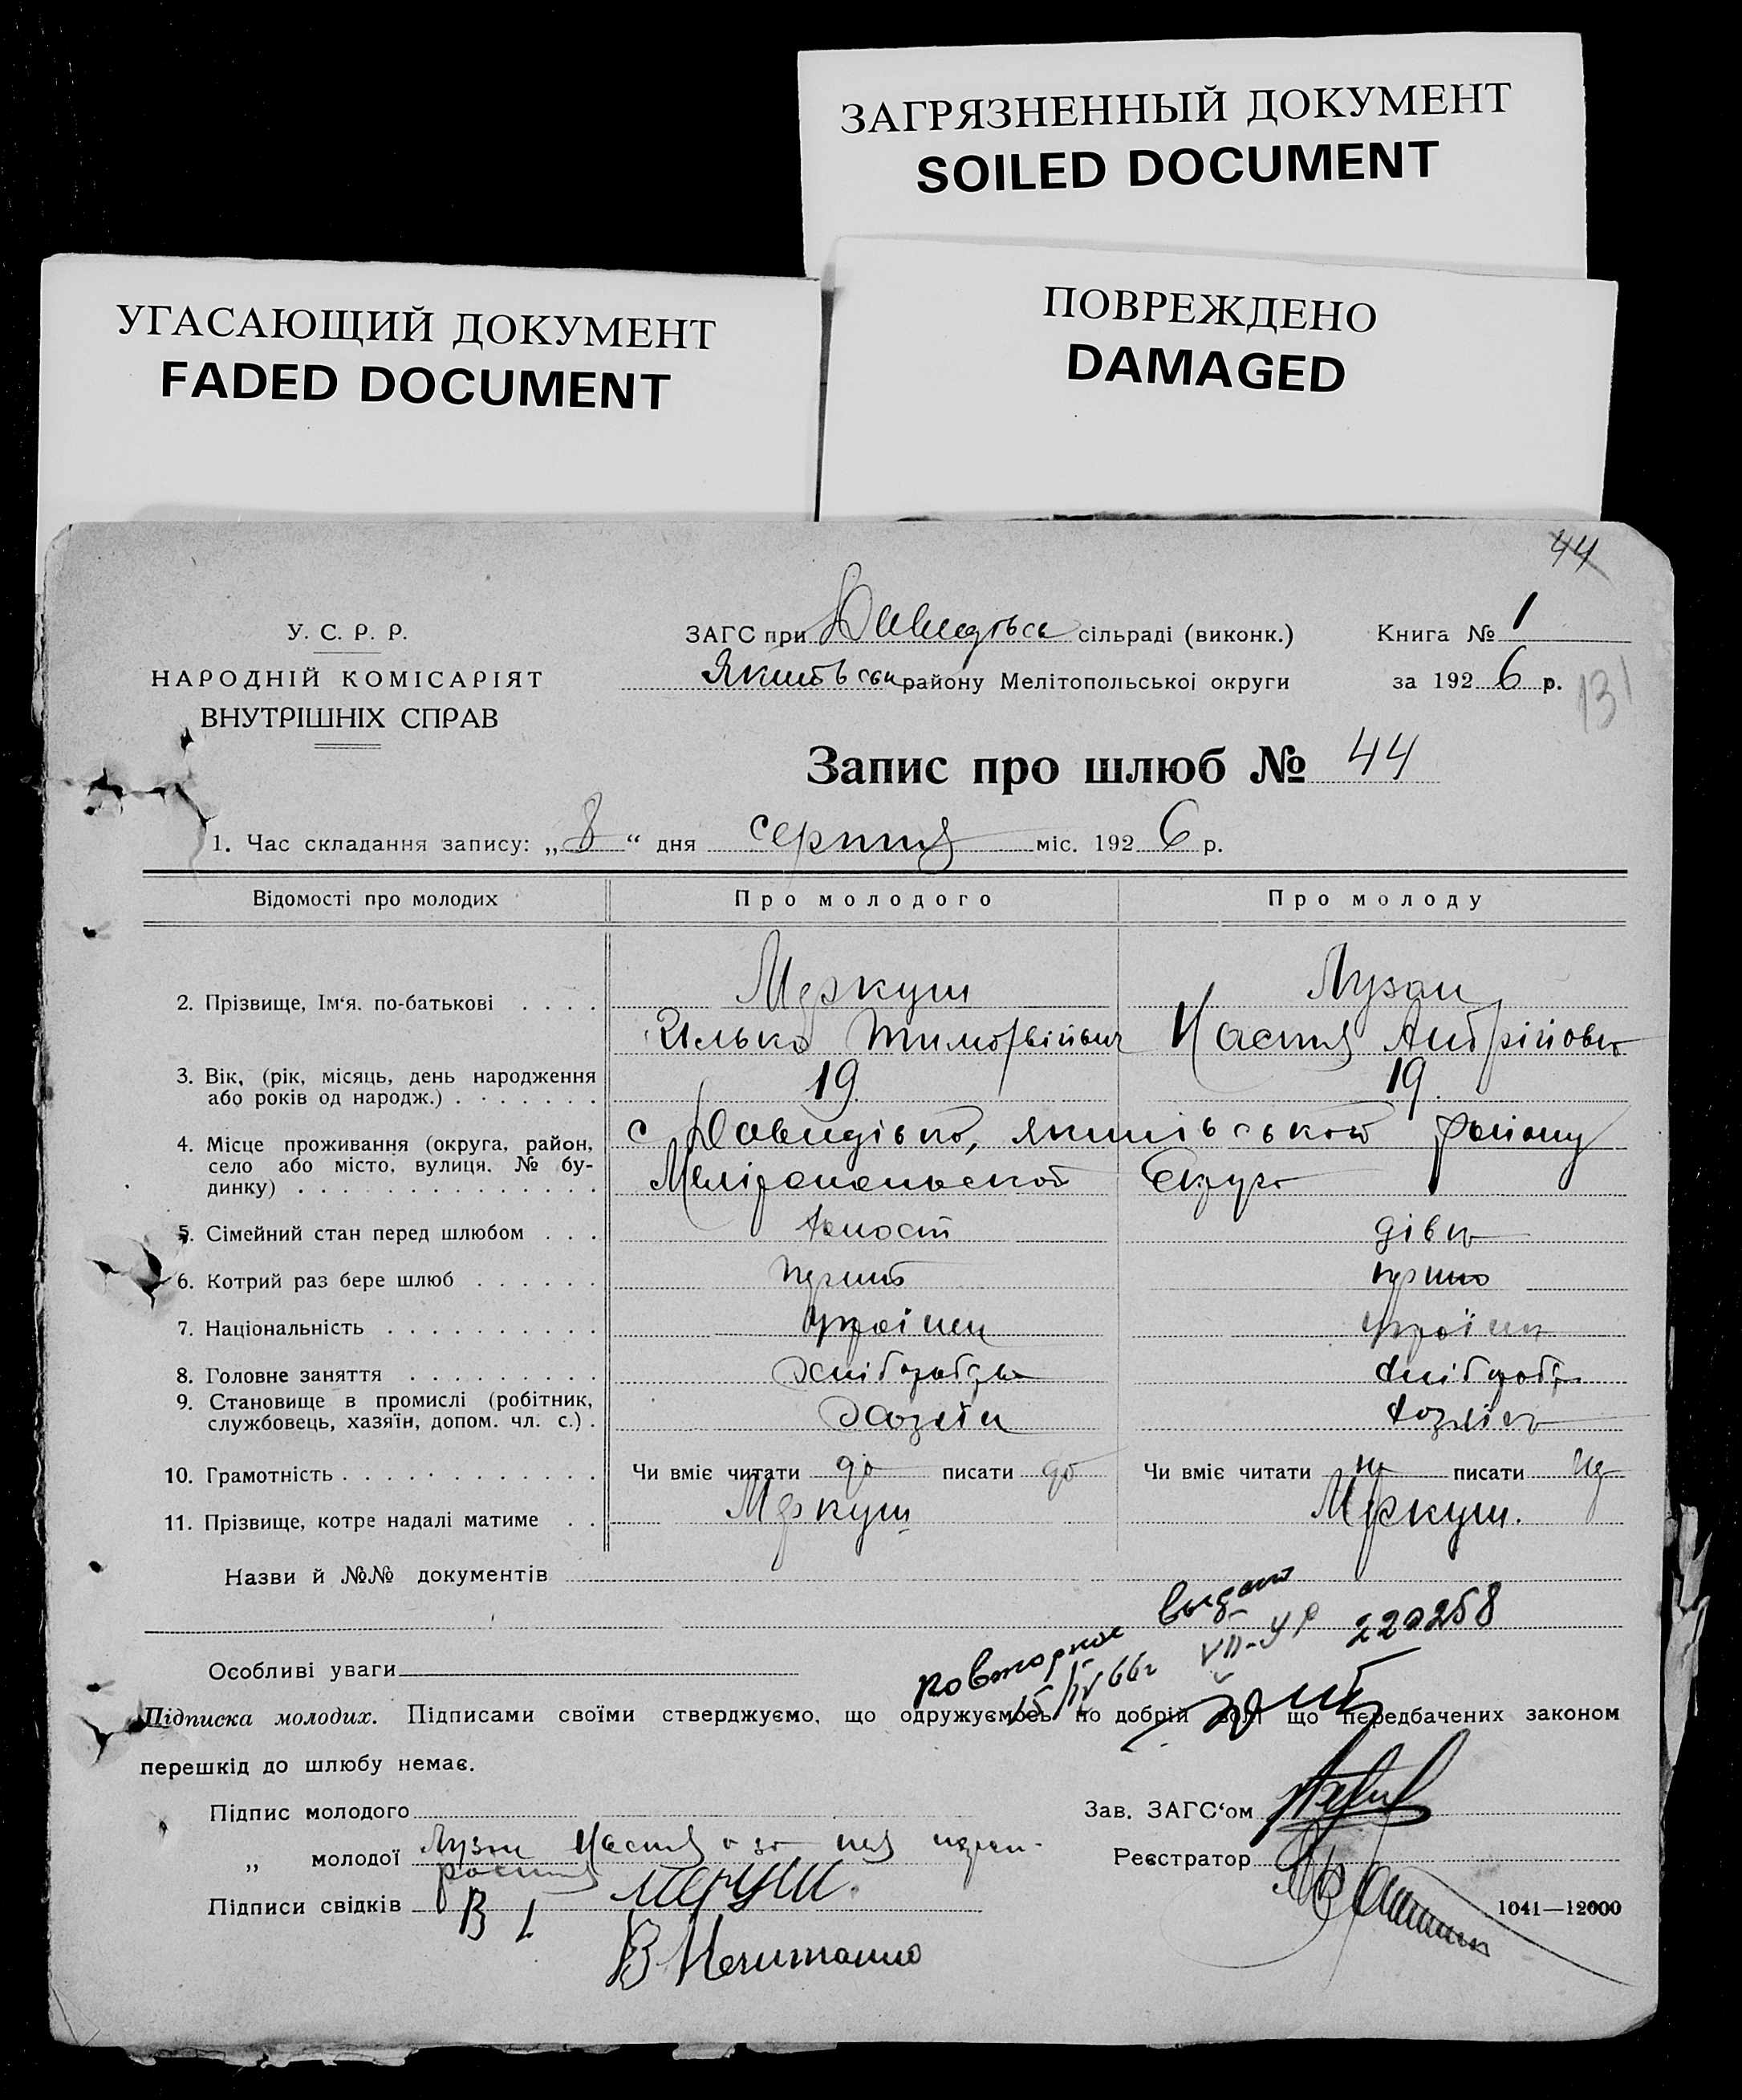 ЗАГРЯЗНЕННЫЙ ДОКУМЕНТ
SOILED DOCUMENT
УГАСАЮЩИЙ ДОКУМЕНТ
FADED DOCUMENT
ПОВРЕЖДЕНО
DAMAGED
44
У. С. Р. Р.
НАРОДНІЙ КОМІСАРІЯТ
ВНУТРІШНІХ СПРАВ
ЗАГС при сільраді (виконк.)
району Мелітопольськоі округи
Книга № 1
за 1926 р.
131
Запис про шлюб № 44
1. Час складання запису: „8“ дня серпня міс. 1926 р.
Відомості про молодих Про молодого Про молоду
2. Прізвище, Ім‘я. по-батькові . . . . Меркуш Лузан
Илько Тимофійович Настя Андрійовна
3. Вік, (рік, місяць, день народження
або років од народж.) . . . . . . . 19 19
4. Місце проживання (округа, район,
село або місто, вулиця. № бу-
динку) . . . . . . . . . . . . . . .
с Давидівка, району
5. Сімейний стан перед шлюбом . . . дівка
6. Котрий раз бере шлюб . . . . . .
7. Національність . . . . . . . . . . українец українка
8. Головне заняття . . . . . . . . .
9. Становище в промислі (робітник,
службовець, хазяїн, допом. чл. с.) . Хозяїн
10. Грамотність . . . . . . . . . . . . Чи вміє читати да писати да Чи вміє читати не писати не
11. Прізвище, котре надалі матиме . . Меркуш Меркуш.
Назви й №№ документів
повторное выдано
15/IV 66г VII-УР 220258
Особливі уваги
Підписка молодих. Підписами своїми стверджуємо, що одружуємось по добрій волі що передбачених законом
перешкід до шлюбу немає.
Підпис молодого
Зав. ЗАГС‘ом
„ молодої Лузан Настя а за
Реєстратор
Підписи свідків
1041—12000